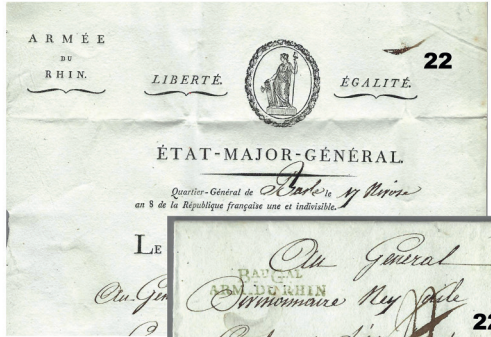 ARMÉE
DU
RHIN.
LIBERTÉ.
ÉGALITÉ.
22
ÉTAT-MAJOR-GÉNÉRAL.
Quartier-Général de Basle le 17 Nivose
an 8 de la République française une et indivisible.
LE
Au Gén
Au Général
BAU GAL
ARM. DU RHIN
Divisionnaire Ney
22